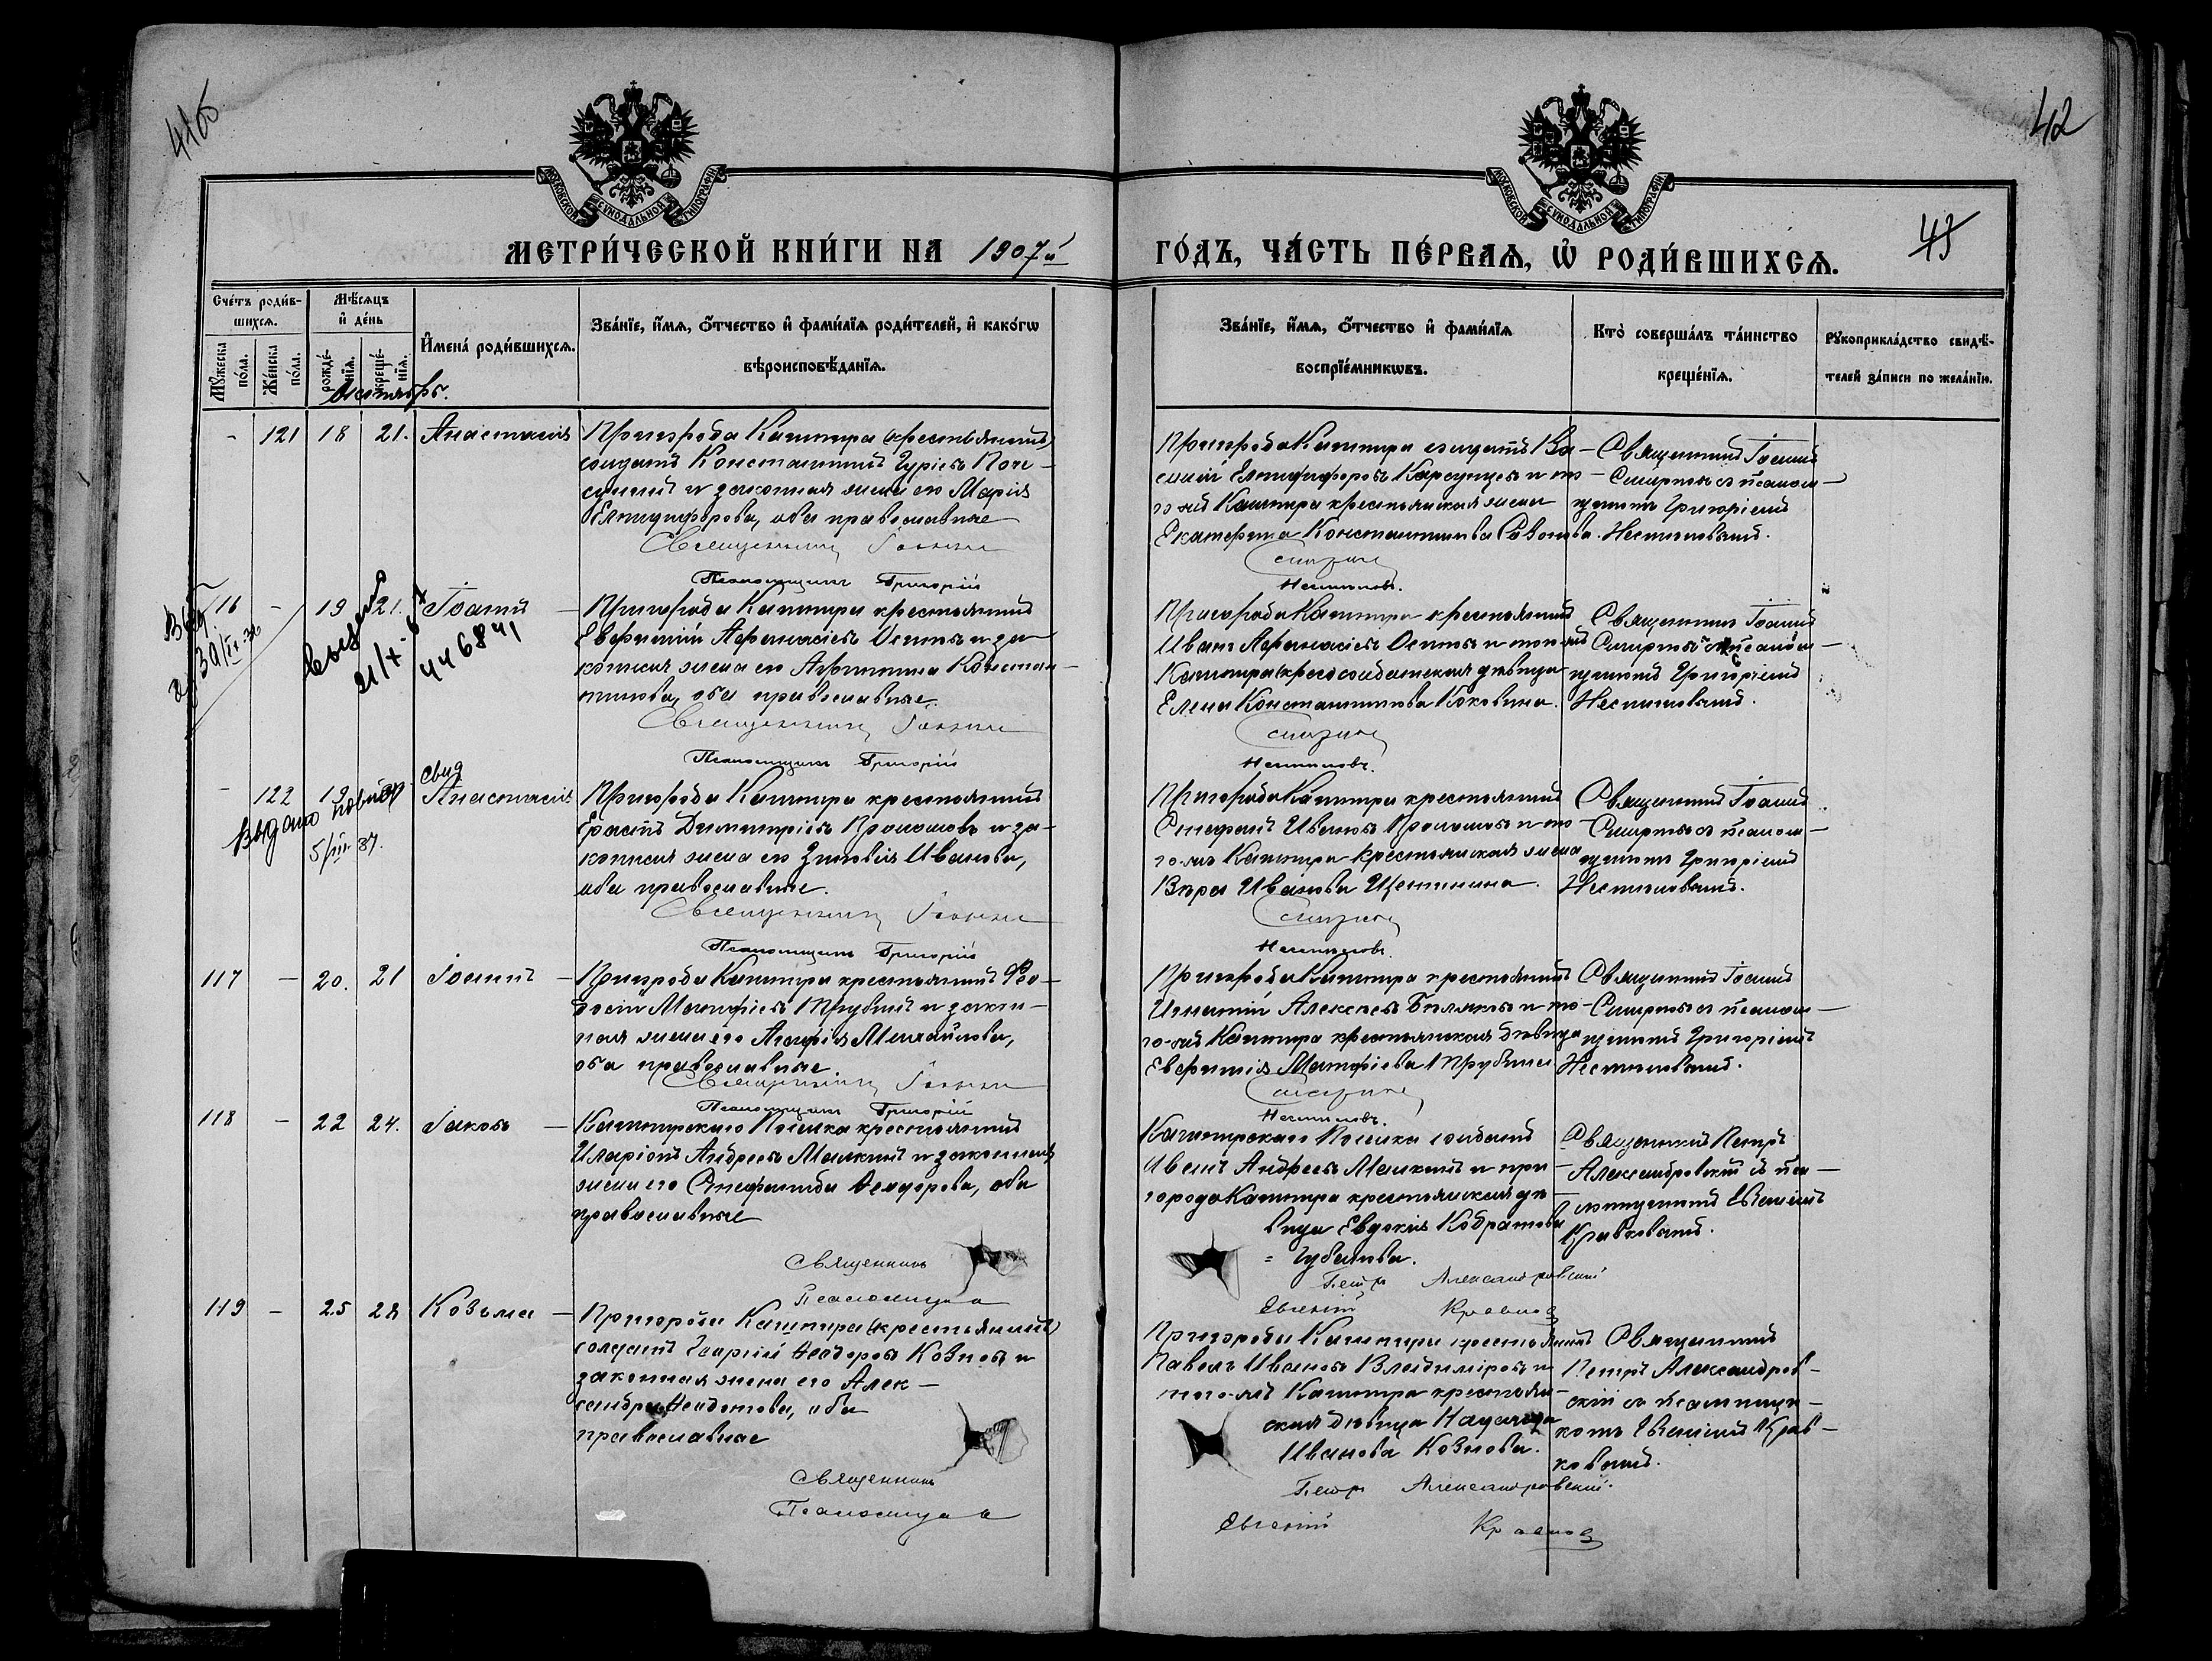 4165
42
43
МОСКОВСКОЙ СУНОДАЛЬНОЙ ТИПОГРАФІИ
МОСКОВСКОЙ СУНОДАЛЬНОЙ ТИПОГРАФІИ
МЕТРИ́ЧЕСКОЙ КНИ́ГИ НА 1907й
ГО́ДЪ, ЧА́СТЬ ПЕ́РВАѦ, Ѡ҆ РОДИ́ВШИХСѦ.
Сче́тъ роди́в-
шихсѧ.
Мꙋ́жеска
по́ла.
Же́нска
по́ла.
Мѣ́сѧцъ
и҆ де́нь
рожде́-
нїѧ.
креще́-
нїѧ.
И҆мена̀ роди́вшихсѧ.
Зва́нїе, и҆́мѧ, ѻ҆́тчество и҆ фами́лїѧ роди́телей, и҆ како́гѡ
вѣроисповѣ́данїѧ.
Зва́нїе, и҆́мѧ, ѻ҆́тчество и҆ фами́лїѧ
воспрїе́мникѡвъ.
Кто̀ соверша́лъ та́инство
креще́нїѧ.
Рꙋкоприкла́дство свидѣ́-
телей за́писи по жела́нїю.
Октябрь.
- 121 18 21. Анастасія
Пригорода Кашпира (крестьянинъ)
солдатъ Константинъ Гуріевъ
и законная жена его Марія
Елпидифорова, оба православные
Священникъ Іоаннъ
Псаломщикъ Григорій
Пригорода Кашпира солдатъ Ва-
силій Елпидифоровъ Карсунцевъ и то-
го-же Кашпира крестьянская жена
Екатерина Константинова
Смирновъ
Священникъ Іоаннъ
Смирновъ съ псалом-
щикомъ Григоріемъ
116 - 19 21. Іоаннъ
выдано
446841
Пригорода Кашпира крестьянинъ
Евфимій Афанасіевъ Осиповъ и за-
конная жена его Агриппина Констан-
тинова, оба православные.
Священникъ Іоаннъ
Псаломщикъ Григорій
Пригорода Кашпира крестьянинъ
Иванъ Афанасіевъ Осиповъ и того-же
Кашпира (крес) солдатская дѣвица
Елена Константинова
Смирновъ
Священникъ Іоаннъ
Смирновъ съ псалом-
щикомъ Григоріемъ
Свид
- 122 19 Анастасія
Выдано повтор
5/III-37.
Пригорода Кашпира крестьянинъ
Ерастъ Димитріевъ и за-
конная жена его Зиновія Иванова,
оба православные.
Священникъ Іоаннъ
Псаломщикъ Григорій
Пригорода Кашпира крестьянинъ
Стефанъ Ивановъ и то-
го-же Кашпира крестьянская жена
Вѣра Иванова Щетинина.
Смирновъ
Священникъ Іоаннъ
Смирновъ съ псалом-
щикомъ Григоріемъ
117 - 20. 21 Іоаннъ
Пригорода Кашпира крестьянинъ Фео-
досій Матфіевъ Трубинъ и закон-
ная жена его Агафія Михайлова,
оба православные.
Священникъ Іоаннъ
Псаломщикъ Григорій
Пригорода Кашпира крестьянинъ
Игнатій Алексѣевъ Бѣляковъ и то-
го-же Кашпира крестьянская дѣвица
Евфимія Матфіева Трубина
Смирновъ
Священникъ Іоаннъ
Смирновъ съ псалом-
щикомъ Григоріемъ
118 - 22 24. Іаковъ
Кашпирскаго Поселка крестьянинъ
Иларіонъ Андреевъ Малкинъ и законная
жена его Стефанида Ѳеодорова, оба
православные
Священникъ
Псаломщикъ
Кашпирскаго Поселка солдатъ
Иванъ Андреевъ Малкинъ и при-
города Кашпира крестьянская дѣ-
вица Евдокія Кодратова
Губанова.
Петръ Александровскій
Евгеній Кравковъ
Священникъ Петръ
Александровскій съ пса-
ломщикомъ Евгеніемъ
Кравковымъ.
119 - 25 28 Козьма
Пригорода Кашпира (крестьянинъ)
солдатъ Георгій Ѳеодоровъ Козновъ и
законная жена его Алек-
сандра Ѳедотова, оба
православные
Священникъ
Псаломщикъ
Пригорода Кашпира крестьянинъ
Павелъ Ивановъ Владиміровъ и
того-же Кашпира крестьян-
ская дѣвица
Иванова Кознова.
Петръ Александровскій.
Евгеній Кравковъ
Священникъ
Петръ Александров-
скій съ псаломщи-
комъ Евгеніемъ Крав-
ковымъ.